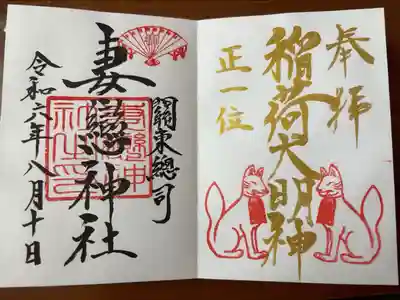 奉拝
稲荷大明神
正一位
關東總司
妻戀神社
令和六年八月十日